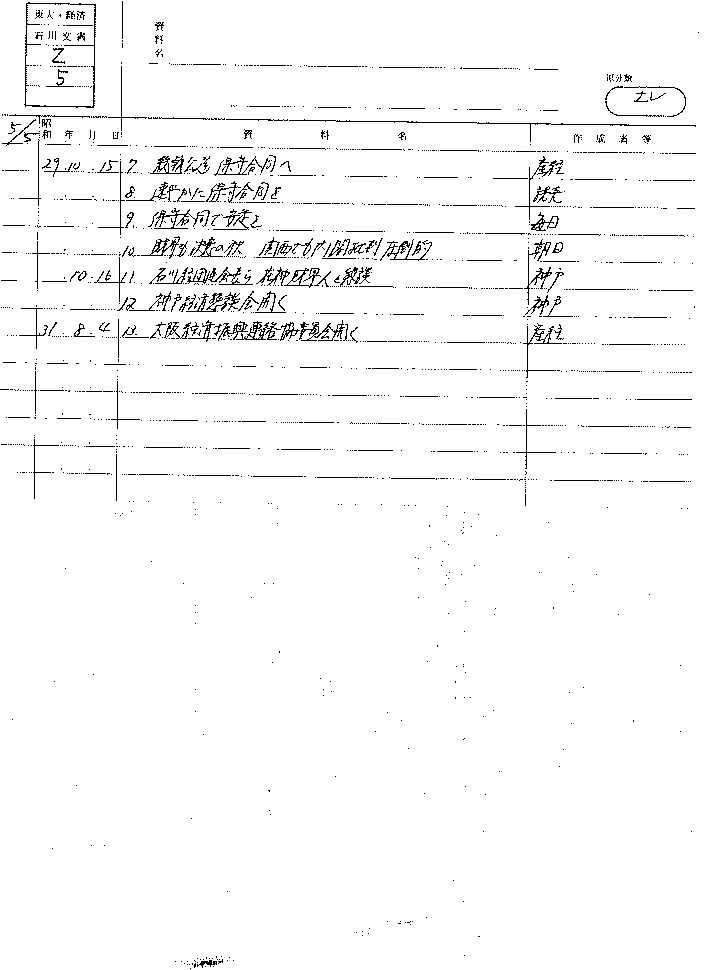 東大・経済
石川文書
Z
5
資料名
原分類
ナレ
5/5
昭和 年 月 日 資料名 作成者等
29.10.15 7 保守合同へ 産経
8 速やかに保守合同を 読売
9 保守合同で安定を 毎日
10 財界も決意の秋 関西でも 圧倒的 朝日
.10.16 11 石川経団連会長ら 在神財界人と懇談 神戸
12 神戸経済懇談会開く 神戸
31 8.4 13 大阪経済振興連絡協議会開く 産経